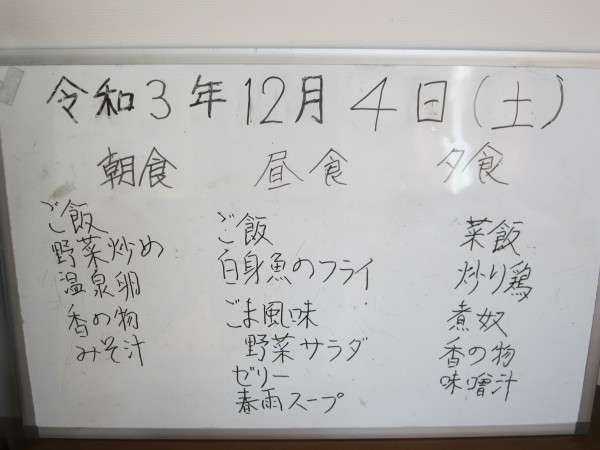 令和3年12月4日(土)
朝食
ご飯
野菜炒め
温泉卵
香の物
みそ汁
昼食
ご飯
白身魚のフライ
ごま風味
野菜サラダ
ゼリー
春雨スープ
夕食
菜飯
炒り鶏
煮奴
香の物
味噌汁